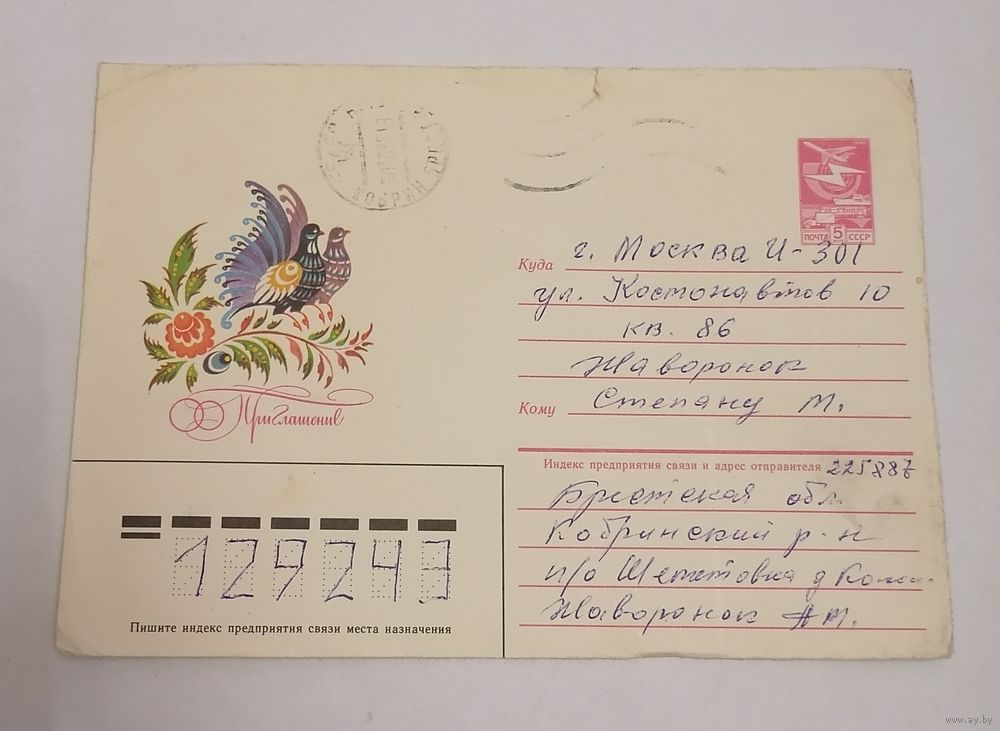 КОБРИН
ПОЧТА 5 СССР
Куда г. Москва И-301
ул. Костонавтов 10
кв. 86
Жаворонок
Кому Степану М.
Приглашение
Индекс предприятия связи и адрес отправителя 225887
Брестская обл.
Кобринский р-н
п/о Шеметовка д
Жаворонок А М.
129243
Пишите индекс предприятия связи места назначения
www.ay.by